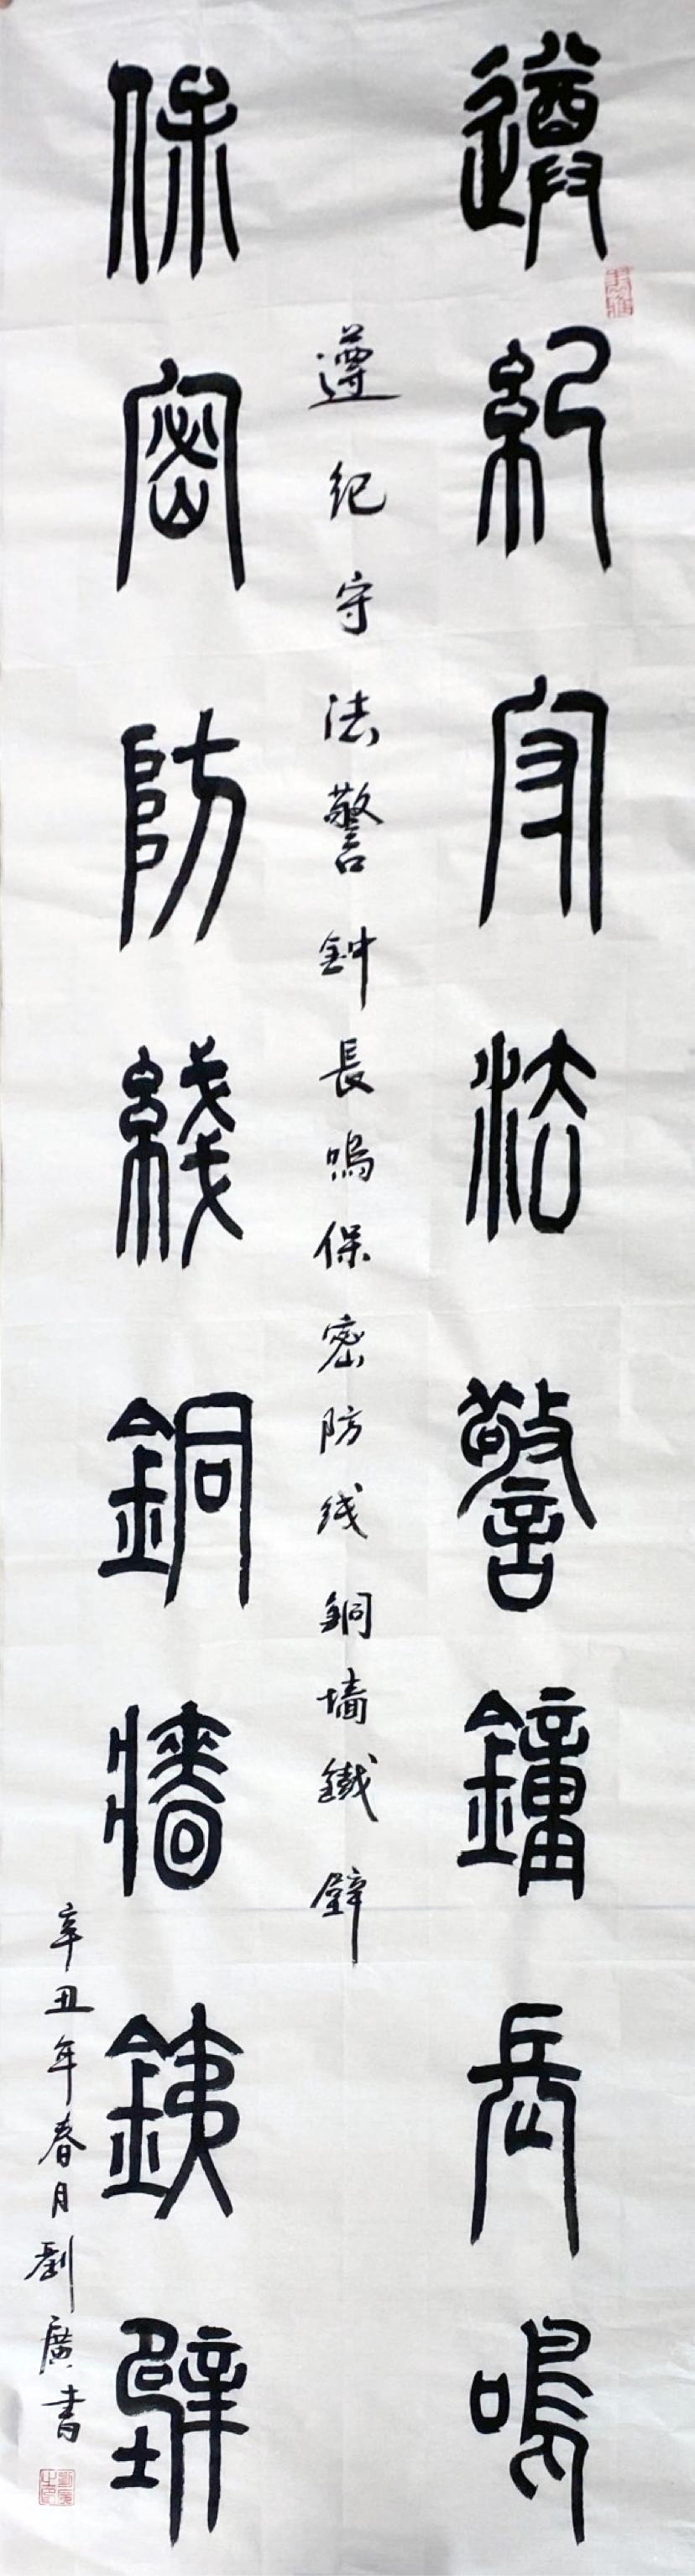 遵紀守法警鐘長鳴
遵纪守法警鈡長鳴保密防线銅墙鐵壁
保密防綫銅牆鐵壁
辛丑年春月劉廣書